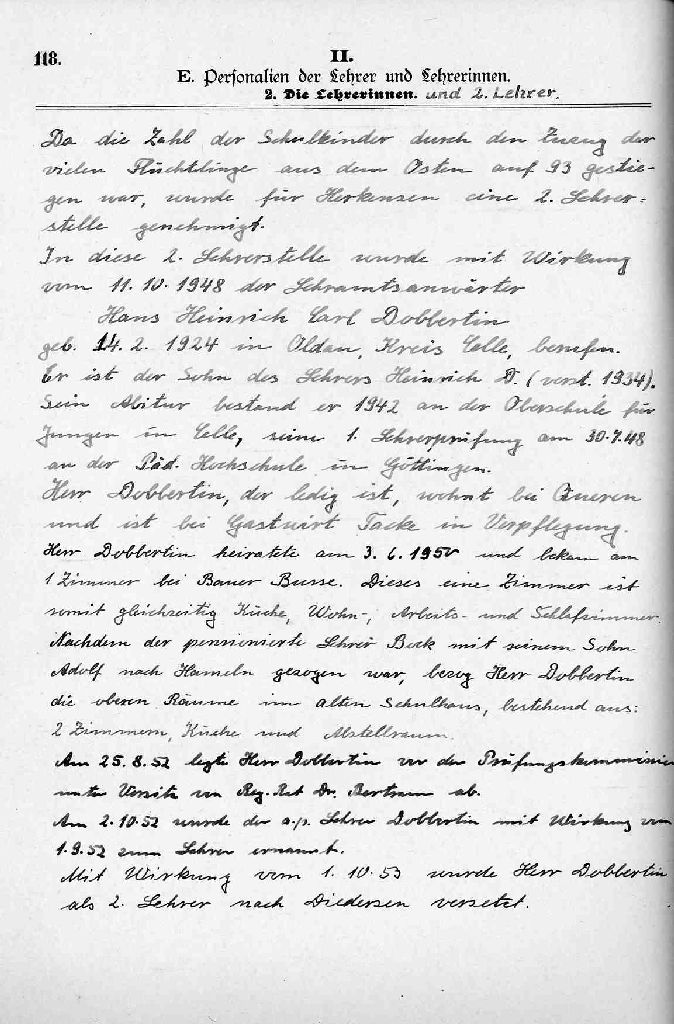 118.
II.
E. Personalien der Lehrer und Lehrerinnen.
2. Die Lehrerinnen. und 2. Lehrer.
Da die Zahl der Schulkinder durch den Zuzug der
vielen Flüchtlinge aus dem Osten auf 93 gestie-
gen war, wurde für Herkensen eine 2. Lehrer-
stelle genehmigt.
In diese 2. Lehrerstelle wurde mit Wirkung
vom 11.10.1948 der Lehramtsanwärter
Hans Heinrich Carl Dobbertin
geb. 14.2.1924 in Oldau, Kreis Celle, berufen.
Er ist der Sohn des Lehrers Heinrich D. (verst. 1934).
Sein Abitur bestand er 1942 an der Oberschule für
Jungen in Celle, seine 1. Lehrerprüfung am 30.7.48
an der Päd. Hochschule in Göttingen.
Herr Dobbertin, der ledig ist, wohnt bei
und ist bei Gastwirt Tacke in Verpflegung.
Herr Dobbertin heiratete am 3.6.1950 und bekam am
1 Zimmer bei Bauer Busse. Dieses eine Zimmer ist
somit gleichzeitig Küche, Wohn-, Arbeits- und Schlafzimmer.
Nachdem der pensionierte Lehrer Bock mit seinem Sohn
Adolf nach Hameln gezogen war, bezog Herr Dobbertin
die oberen Räume im alten Schulhaus, bestehend aus:
2 Zimmern, Küche und Abstellraum.
Am 25.8.52 legte Herr Dobbertin vor der Prüfungskommission
unter Vorsitz von Reg. Rat Dr. Bertram ab.
Am 2.10.52 wurde der a.p. Lehrer Dobbertin mit Wirkung vom
1.9.52 zum Lehrer ernannt.
Mit Wirkung vom 1.10.53 wurde Herr Dobbertin
als 2. Lehrer nach Diedersen versetzt.